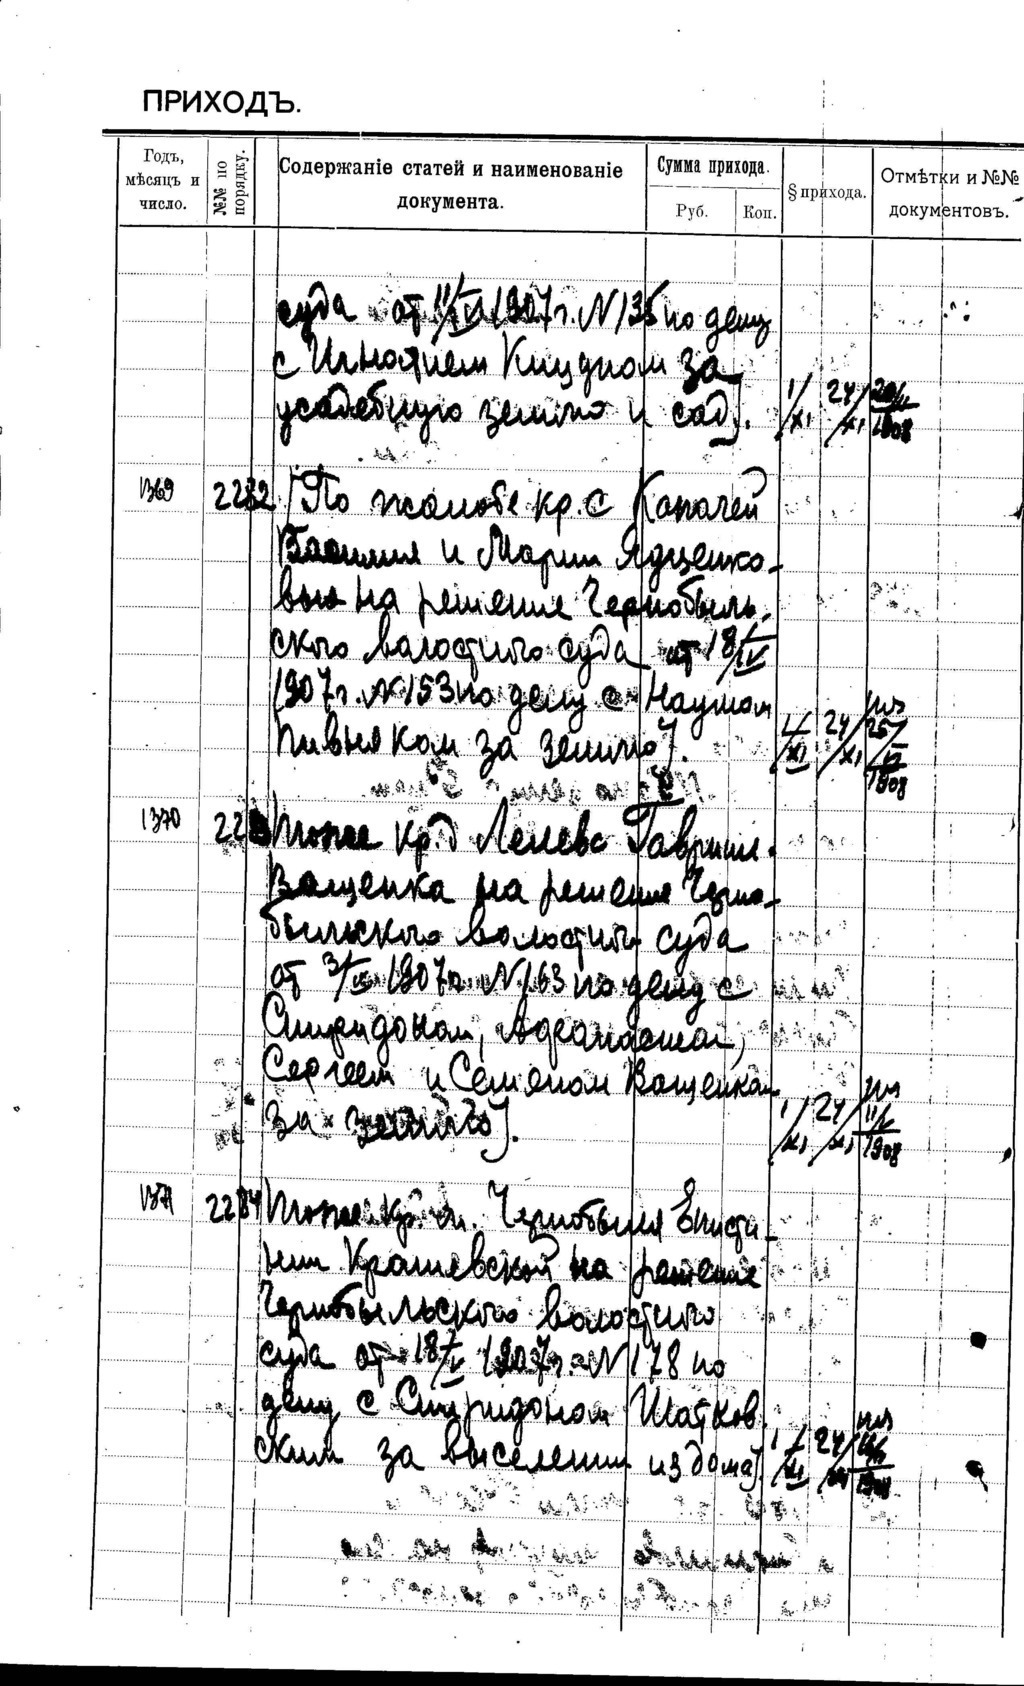 ПРИХОДЪ.
Годъ, мѣсяцъ и число.
№№ по порядку.
Содержаніе статей и наименованіе документа.
Сумма прихода.
Руб. Коп.
§ прихода.
Отмѣтки и №№ документовъ.
суда от 11/ 1907 г. N 135 по делу
с Игнатием за
усадебную землю и сад]. 1/XI 24/XI 1908
1369 2282 [По жалобе кр. с Копачей
Василия и Марии Ядценко-
вых на решение Чернобыль-
ского волостного суда от 18/IV
1907 г. N 153 по делу с Наумом
Пивняком за землю]. 1/XI 24/XI 25/ 1908
1370 228 Тоже кр. д Лелева Гавриила
Ващенка на решение Черно-
быльского волостного суда
от 3/ 1907 г. N 163 по делу с
Спиридоном, Афанасием,
Сергеем и Семеном Ващенкам
за землю]. 1/XI 24/XI 11/V 1908
1371 2284 Тоже кр. м. Чернобыля Еписти-
нии Крашевской на решение
Чернобыльского волостного
суда от 18/V 1907 г. N 178 по
делу с Спиридоном Шатков-
ским за выселении из дома]. 1/XI 24/XI 1908